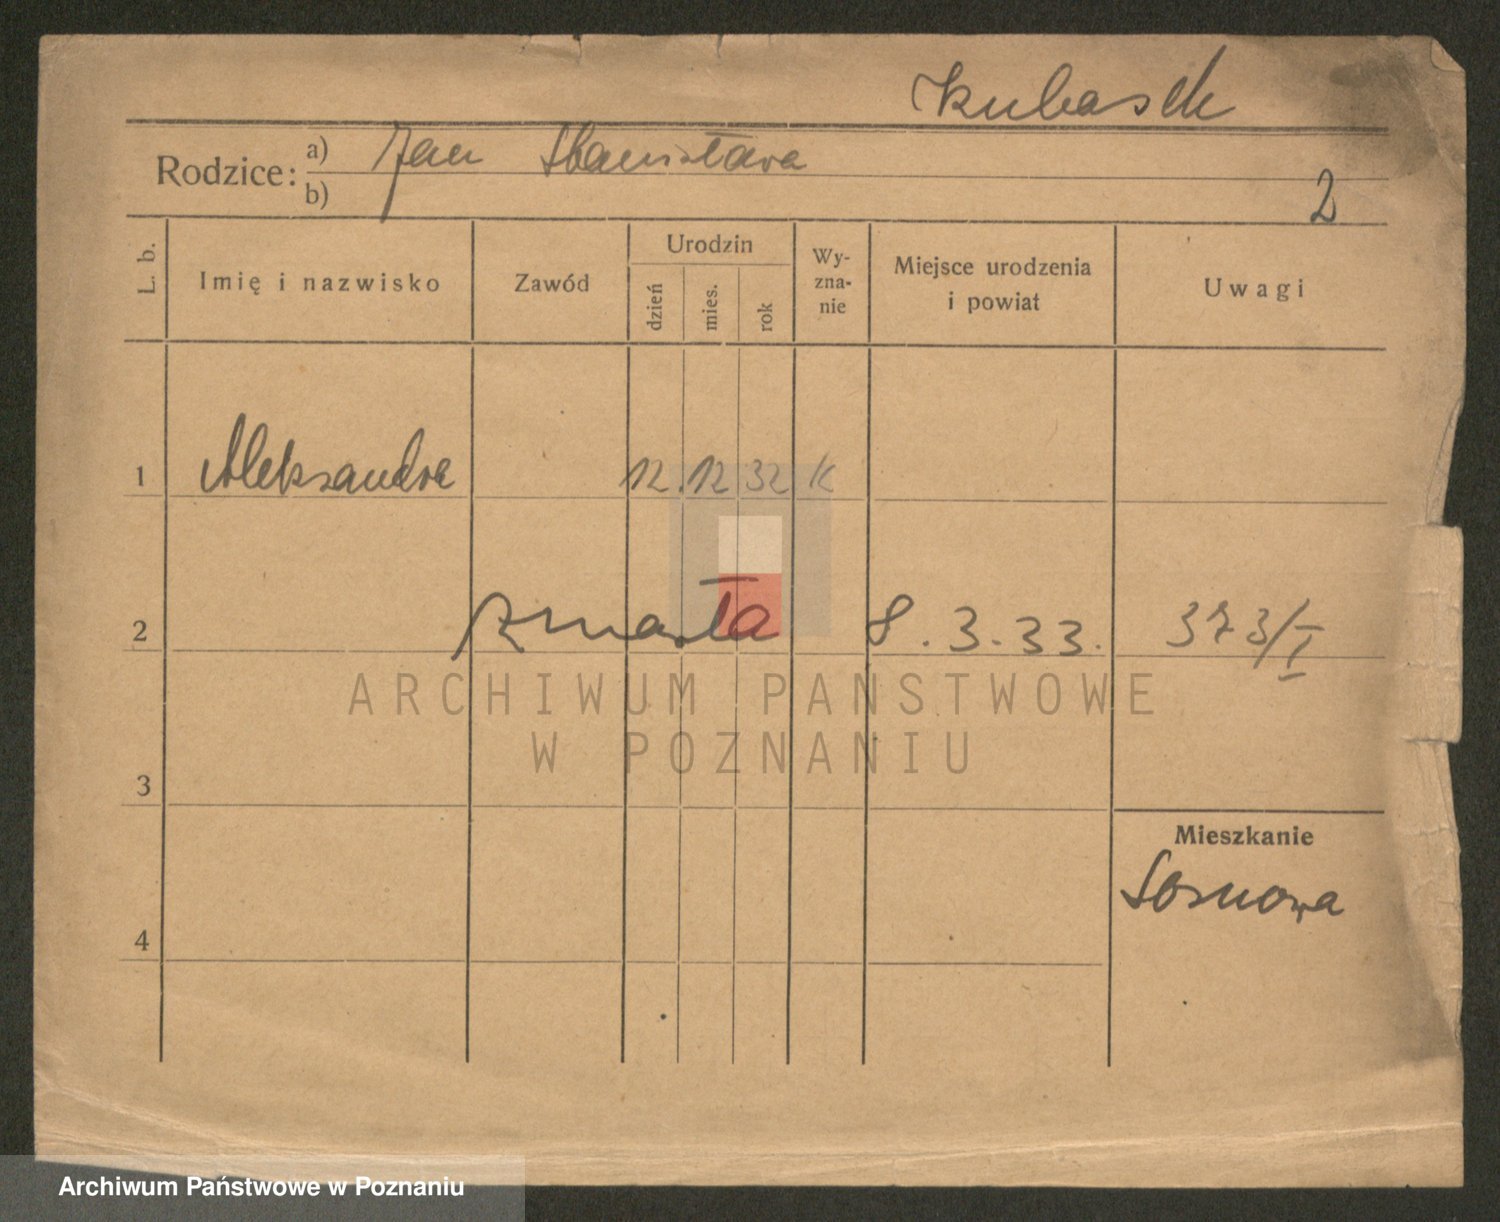 Kubasik
Rodzice: a) Jan Stanisława
b)
2
L. b. Imię i nazwisko Zawód Urodzin dzień mies. rok Wy-zna-nie Miejsce urodzenia i powiat Uwagi
1 Aleksandra 12. 12 32 K
2 Zmarła 8. 3. 33. 373/I
ARCHIWUM PAŃSTWOWE
W POZNANIU
3
Mieszkanie
Sosnowa
4
Archiwum Państwowe w Poznaniu